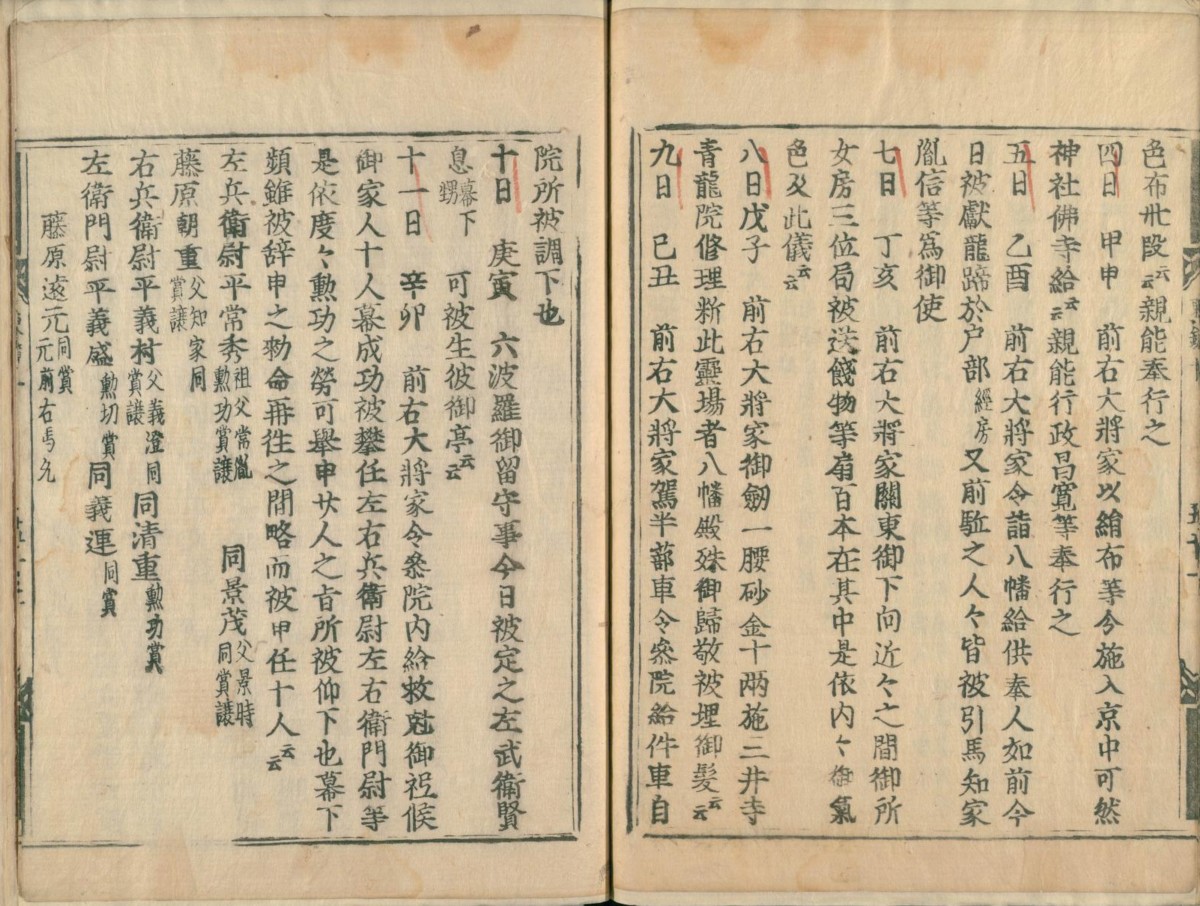 色布卅段云云親能奉行之
四日　甲申　前右大將家以絹布等令施入京中可然
神社佛寺給云云親能行政昌寛等奉行之
五日　乙酉　前右大將家令詣八幡給供奉人如前今
日被獻龍蹄於戸部經房又前駈之人々皆被引馬知家
胤信等為御使
七日　丁亥　前右大將家關東御下向近々之間御所
女房三位局被送餞物等扇百本在其中是依内々御氣
色及此儀云云
八日戊子　前右大將家御劔一腰砂金十兩施三井寺
青龍院修理料此靈場者八幡殿殊御歸敬被埋御髮云云
九日　己丑　前右大將家駕半蔀車令參院給件車自
院所被調下也
十日　庚寅　六波羅御留守事今日被定之左武衛賢
息幕下甥　可被生彼御亭云云
十一日　辛卯　前右大將家令參院内給救尅御祗候
御家人十人幕成功被攀任左右兵衛尉左右衛門尉等
是依度々勲功之勞可舉申廿人之旨所被仰下也幕下
頻雖被辞申之勅命再往之間略而被申任十人云云
左兵衛尉平常秀祖父常胤勲功賞讓　同景茂父景時同賞讓
藤原朝重父知家同賞讓
右兵衛尉平義村父義澄同賞讓　同清重勲功賞
左衛門尉平義盛勲功賞　同義連同賞
藤原遠元同賞元前右馬允